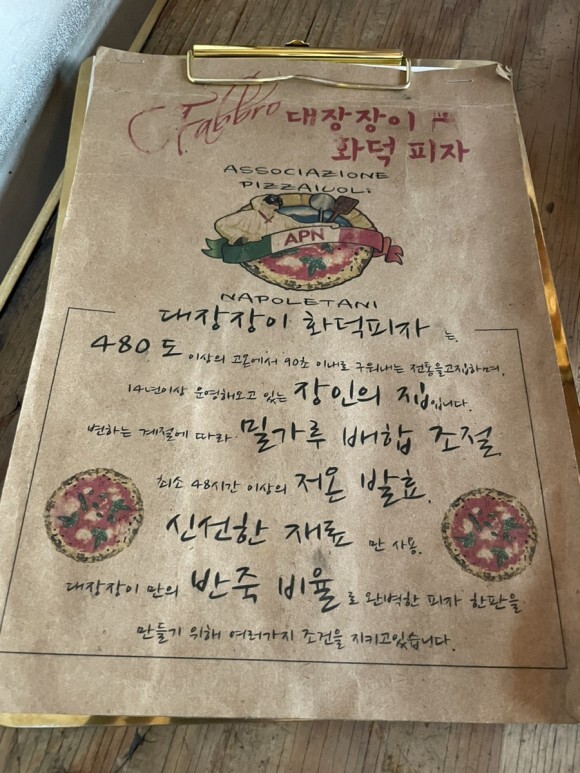 Fabbro 대장장이
화덕 피자
ASSOCIAZIONE
PIZZAIUOLi
APN
NAPOLETANI
대장장이 화덕피자 는,
480도 이상의 고온에서 90초 이내로 구워내는 전통을고집하며,
14년이상 운영해오고 있는 장인의 집입니다.
변하는 계절에 따라 밀가루 배합 조절,
최소 48시간 이상의 저온 발효,
신선한 재료 만 사용,
대장장이 만의 반죽 비율로 완벽한 피자 한판을
만들기 위해 여러가지 조건을 지키고있습니다.